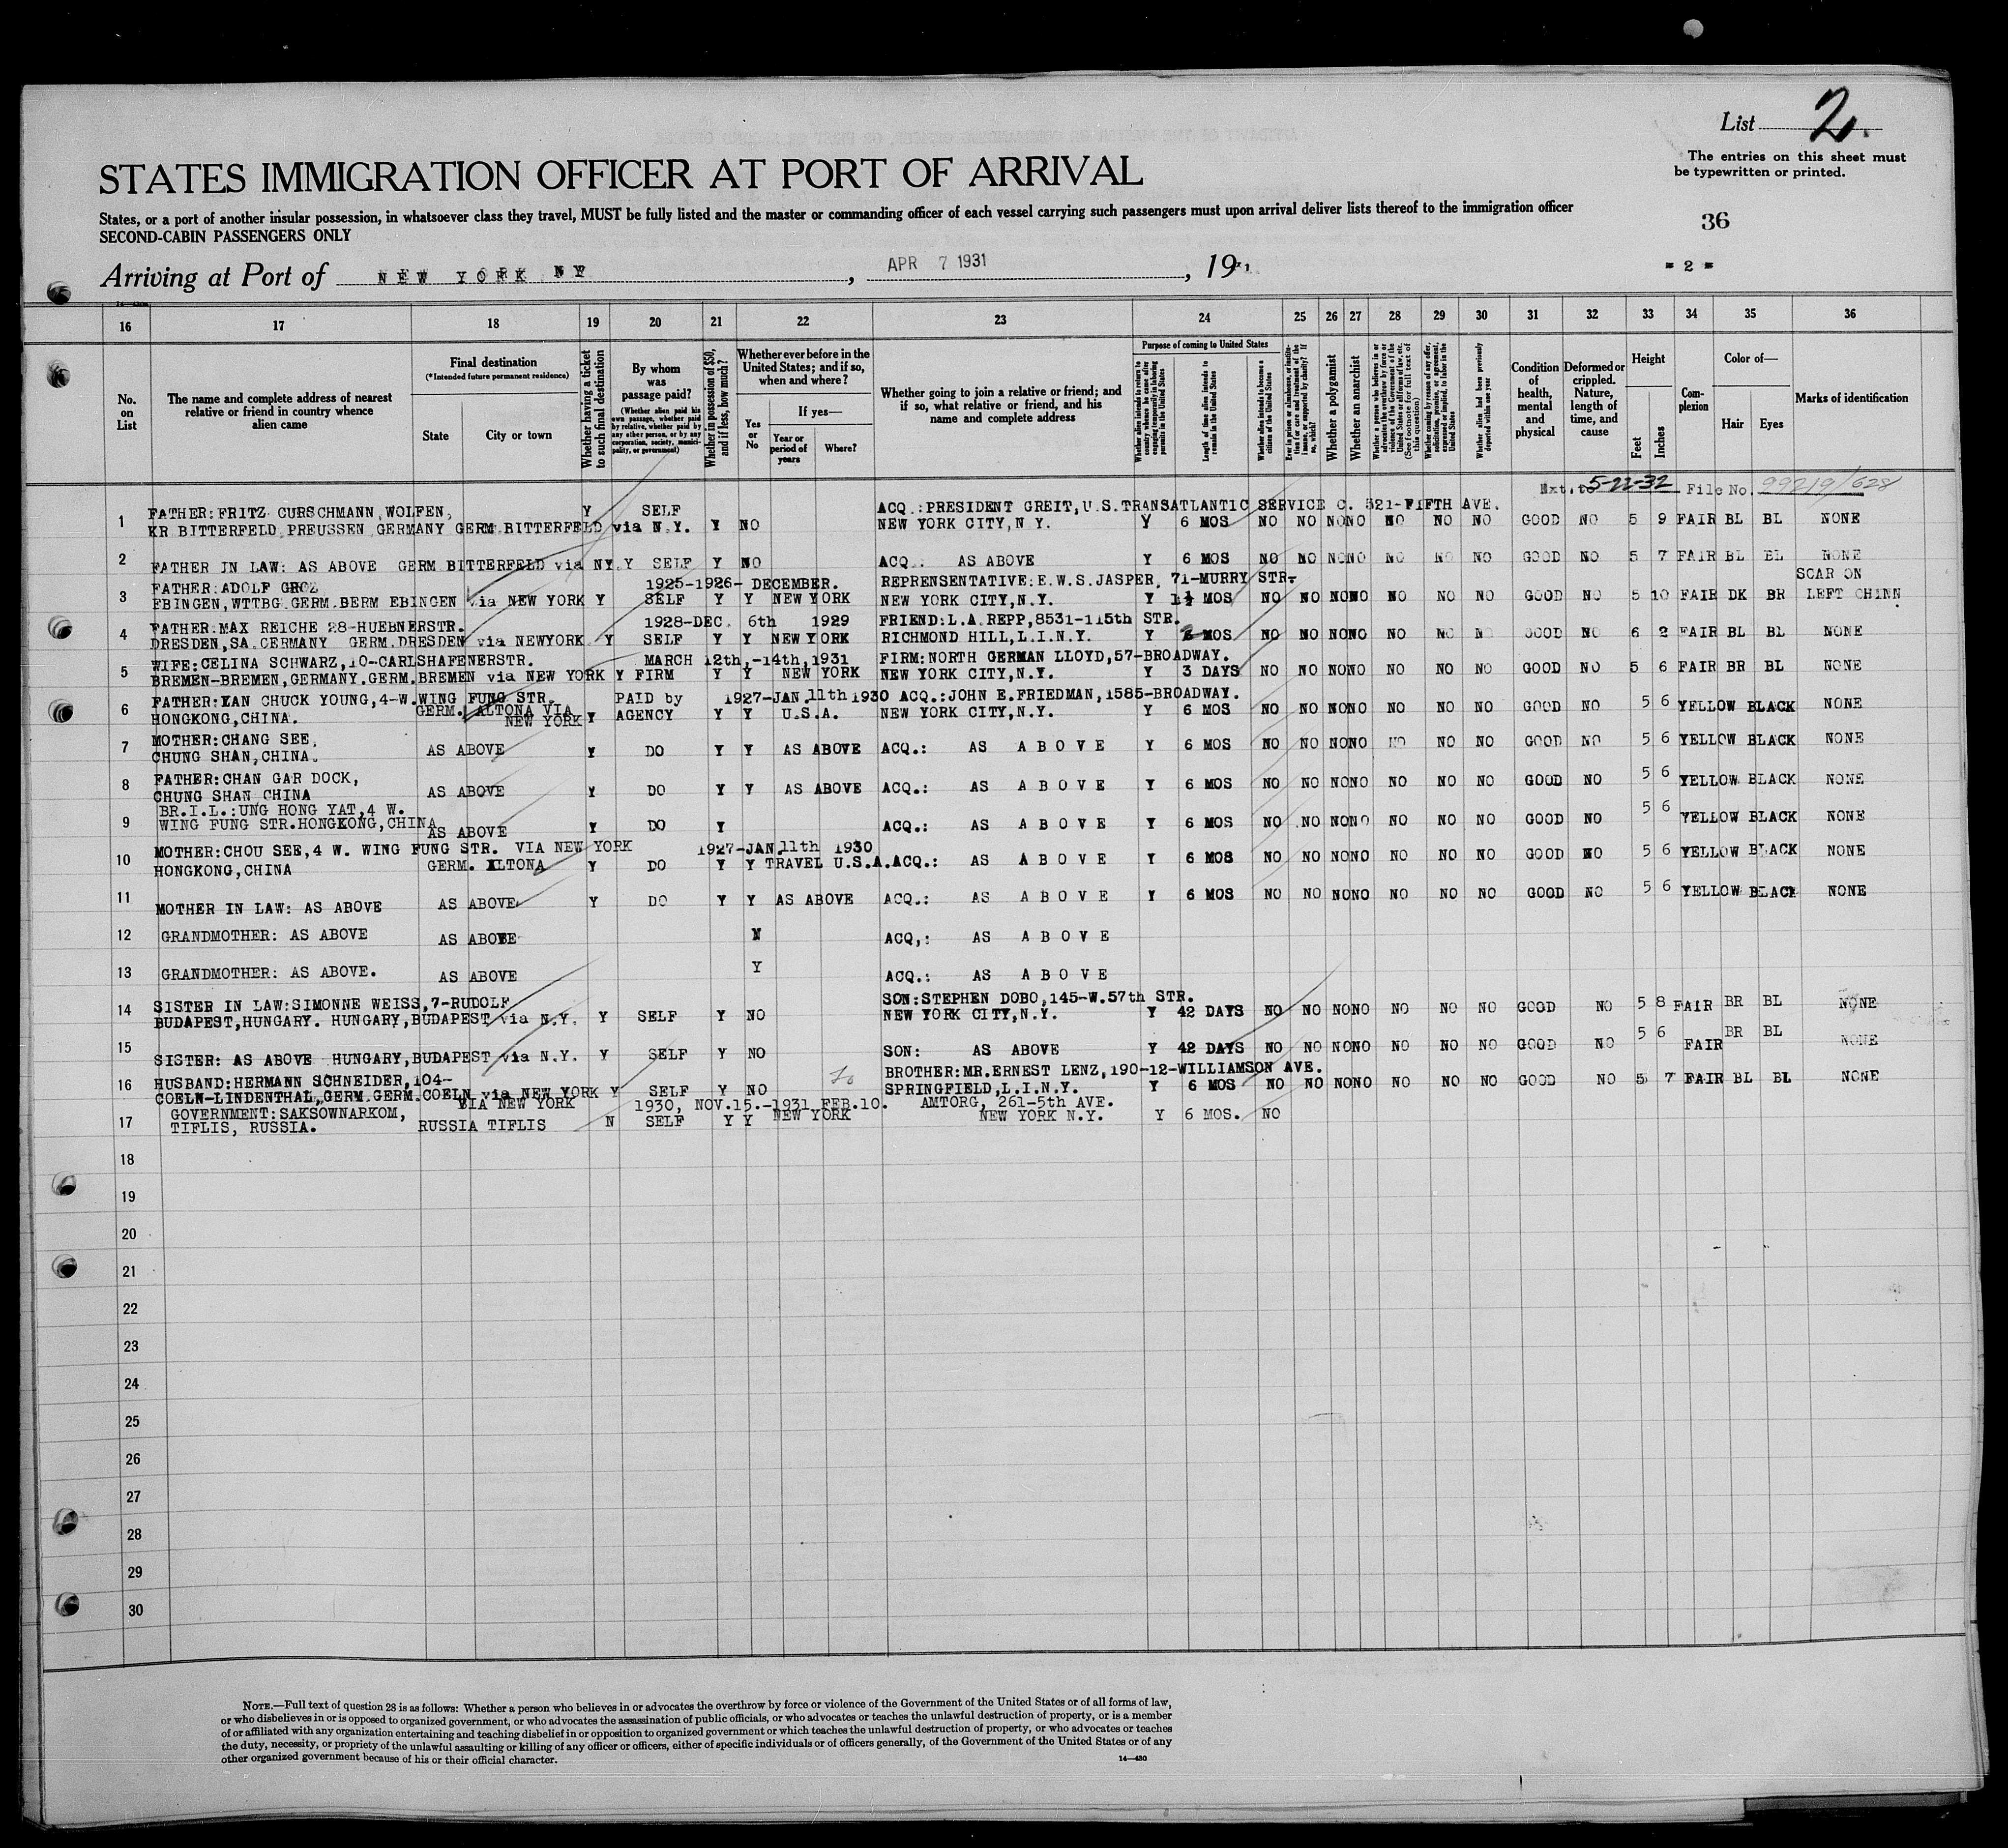 List 2.
The entries on this sheet must
be typewritten or printed.
STATES IMMIGRATION OFFICER AT PORT OF ARRIVAL
States, or a port of another insular possession, in whatsoever class they travel, MUST be fully listed and the master or commanding officer of each vessel carrying such passengers must upon arrival deliver lists thereof to the immigration officer
SECOND-CABIN PASSENGERS ONLY
36
Arriving at Port of NEW YORK NY, APR 7 1931, 19
- 2 -
16 17 18 19 20 21 22 23 24 25 26 27 28 29 30 31 32 33 34 35 36
No. on List
The name and complete address of nearest relative or friend in country whence alien came
Final destination
(*Intended future permanent residence)
State
City or town
Whether having a ticket to such final destination
By whom was passage paid?
(Whether alien paid his own passage, whether paid by relative, whether paid by any other person, or by any corporation, society, municipality, or government)
Whether in possession of $50, and if less, how much?
Whether ever before in the United States; and if so, when and where?
Yes or No
If yes—
Year or period of years
Where?
Whether going to join a relative or friend; and if so, what relative or friend, and his name and complete address
Purpose of coming to United States
Whether alien intends to return to country whence he came after engaging temporarily in laboring pursuits in the United States
Length of time alien intends to remain in the United States
Whether alien intends to become a citizen of the United States
Ever in prison or almshouse, or institution for care and treatment of the insane, or supported by charity? If so, which?
Whether a polygamist
Whether an anarchist
Whether a person who believes in or advocates the overthrow by force or violence of the Government of the United States or all forms of law, etc. (See footnote for full text of this question)
Whether coming by reason of any offer, solicitation, promise, or agreement, expressed or implied, to labor in the United States
Whether alien had been previously deported within one year
Condition of health, mental and physical
Deformed or crippled. Nature, length of time, and cause
Height
Feet
Inches
Complexion
Color of—
Hair
Eyes
Marks of identification
Ext. to 5-22-32 File No. 99219/628
1 FATHER: FRITZ CURSCHMANN, WOLFEN, Y SELF ACQ.: PRESIDENT GREIT, U.S. TRANSATLANTIC SERVICE C. 521-FIFTH AVE.
KR BITTERFELD PREUSSEN GERMANY GERM. BITTERFELD via N.Y. Y NO NEW YORK CITY, N Y. Y 6 MOS NO NO NO NO NO NO NO GOOD NO 5 9 FAIR BL BL NONE
2 FATHER IN LAW: AS ABOVE GERM BITTERFELD via NY. Y SELF Y NO ACQ.: AS ABOVE Y 6 MOS NO NO NO NO NO NO NO GOOD NO 5 7 FAIR BL BL NONE
3 FATHER: ADOLF GROZ 1925-1926- DECEMBER. REPRENSENTATIVE: E.W.S. JASPER, 71-MURRY STR- SCAR ON
EBINGEN, WTTBG. GERM. BERM EBINGEN via NEW YORK Y SELF Y Y NEW YORK NEW YORK CITY, N.Y. Y 1½ MOS NO NO NO NO NO NO NO GOOD NO 5 10 FAIR DK BR LEFT CHINN
4 FATHER: MAX REICHE 28-HUEBNERSTR. 1928-DEC. 6th 1929 FRIEND: L.A. REPP, 8531-115th STR.
DRESDEN, SA. GERMANY GERM. DRESDEN via NEWYORK Y SELF Y Y NEW YORK RICHMOND HILL, L.I.N.Y. Y MOS NO NO NO NO NO NO NO GOOD NO 6 2 FAIR BL BL NONE
5 WIFE: CELINA SCHWARZ, 10-CARLSHAFENERSTR. MARCH 12th,-14th, 1931 FIRM: NORTH GERMAN LLOYD, 57-BROADWAY.
BREMEN-BREMEN, GERMANY. GERM. BREMEN via NEW YORK Y FIRM Y Y NEW YORK NEW YORK CITY, N.Y. Y 3 DAYS NO NO NO NO NO NO NO GOOD NO 5 6 FAIR BR BL NONE
6 FATHER: ZAN CHUCK YOUNG, 4-W. WING FUNG STR. PAID by 1927-JAN. 11th 1930 ACQ.: JOHN E. FRIEDMAN, 1585-BROADWAY.
HONGKONG, CHINA. GERM. ALTONA VIA NEW YORK Y AGENCY Y Y U.S.A. NEW YORK CITY, N.Y. Y 6 MOS NO NO NO NO NO NO NO GOOD NO 5 6 YELLOW BLACK NONE
7 MOTHER: CHANG SEE,
CHUNG SHAN, CHINA. AS ABOVE Y DO Y Y AS ABOVE ACQ.: AS ABOVE Y 6 MOS NO NO NO NO NO NO NO GOOD NO 5 6 YELLOW BLACK NONE
8 FATHER: CHAN GAR DOCK,
CHUNG SHAN CHINA AS ABOVE Y DO Y Y AS ABOVE ACQ.: AS ABOVE Y 6 MOS NO NO NO NO NO NO NO GOOD NO 5 6 YELLOW BLACK NONE
9 BR.I.L.: UNG HONG YAT, 4 W.
WING FUNG STR. HONGKONG, CHINA AS ABOVE Y DO Y ACQ.: AS ABOVE Y 6 MOS NO NO NO NO NO NO NO GOOD NO 5 6 YELLOW BLACK NONE
10 MOTHER: CHOU SEE, 4 W. WING FUNG STR. VIA NEW YORK 1927-JAN. 11th 1930
HONGKONG, CHINA GERM. ALTONA Y DO Y Y TRAVEL U.S.A. ACQ.: AS ABOVE Y 6 MOS NO NO NO NO NO NO NO GOOD NO 5 6 YELLOW BLACK NONE
11 MOTHER IN LAW: AS ABOVE AS ABOVE Y DO Y Y AS ABOVE ACQ.: AS ABOVE Y 6 MOS NO NO NO NO NO NO NO GOOD NO 5 6 YELLOW BLACK NONE
12 GRANDMOTHER: AS ABOVE AS ABOVE N ACQ,: AS ABOVE
13 GRANDMOTHER: AS ABOVE. AS ABOVE Y ACQ.: AS ABOVE
14 SISTER IN LAW: SIMONNE WEISS, 7-RUDOLF SON: STEPHEN DOBO, 145-W. 57th STR.
BUDAPEST, HUNGARY. HUNGARY, BUDAPEST via N.Y. Y SELF Y NO NEW YORK CITY, N.Y. Y 42 DAYS NO NO NO NO NO NO NO GOOD NO 5 8 FAIR BR BL NONE
15 SISTER: AS ABOVE HUNGARY, BUDAPEST via N.Y. Y SELF Y NO SON: AS ABOVE Y 42 DAYS NO NO NO NO NO NO NO GOOD NO 5 6 FAIR BR BL NONE
16 HUSBAND: HERMANN SCHNEIDER, 104- BROTHER: MR. ERNEST LENZ, 190-12-WILLIAMSON AVE.
COELN-LINDENTHAL, GERM. GERM. COELN via NEW YORK Y SELF Y NO SPRINGFIELD, L.I.N.Y. Y 6 MOS NO NO NO NO NO NO NO GOOD NO 5 7 FAIR BL BL NONE
17 GOVERNMENT: SAKSOWNARKOM, VIA NEW YORK 1930, NOV. 15.-1931 FEB. 10. AMTORG, 261-5th AVE.
TIFLIS, RUSSIA. RUSSIA TIFLIS N SELF Y Y NEW YORK NEW YORK N.Y. Y 6 MOS. NO
18
19
20
21
22
23
24
25
26
27
28
29
30
NOTE.—Full text of question 28 is as follows: Whether a person who believes in or advocates the overthrow by force or violence of the Government of the United States or of all forms of law,
or who disbelieves in or is opposed to organized government, or who advocates the assassination of public officials, or who advocates or teaches the unlawful destruction of property, or is a member
of or affiliated with any organization entertaining and teaching disbelief in or opposition to organized government or which teaches the unlawful destruction of property, or who advocates or teaches
the duty, necessity, or propriety of the unlawful assaulting or killing of any officer or officers, either of specific individuals or of officers generally, of the Government of the United States or of any
other organized government because of his or their official character.
14—430